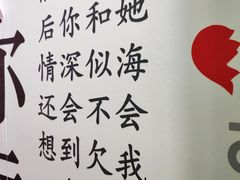 后你和她
情深似海
还会不会
想到欠我
你